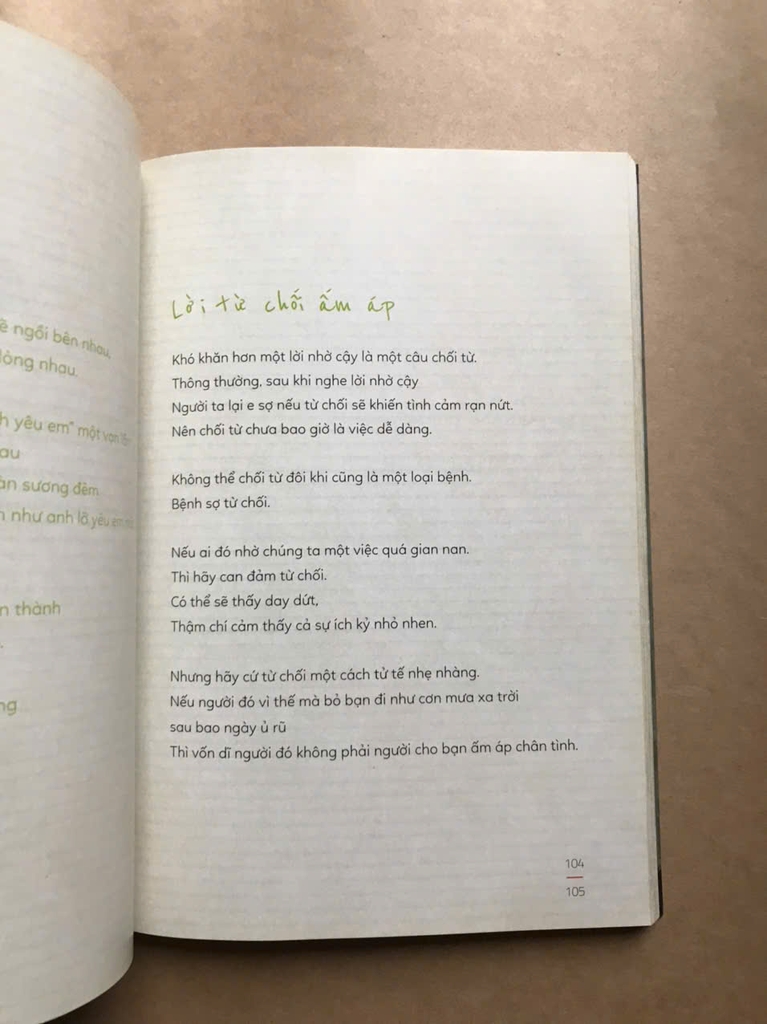 ngồi bên nhau,
lòng nhau.
yêu em" một vạn lần
au
àn sương đêm
n như anh lỡ yêu em
n thành
ng
Lời từ chối ấm áp
Khó khăn hơn một lời nhờ cậy là một câu chối từ.
Thông thường, sau khi nghe lời nhờ cậy
Người ta lại e sợ nếu từ chối sẽ khiến tình cảm rạn nứt.
Nên chối từ chưa bao giờ là việc dễ dàng.
Không thể chối từ đôi khi cũng là một loại bệnh.
Bệnh sợ từ chối.
Nếu ai đó nhờ chúng ta một việc quá gian nan.
Thì hãy can đảm từ chối.
Có thể sẽ thấy day dứt,
Thậm chí cảm thấy cả sự ích kỷ nhỏ nhen.
Nhưng hãy cứ từ chối một cách tử tế nhẹ nhàng.
Nếu người đó vì thế mà bỏ bạn đi như cơn mưa xa trời
sau bao ngày ủ rũ
Thì vốn dĩ người đó không phải người cho bạn ấm áp chân tình.
104
105